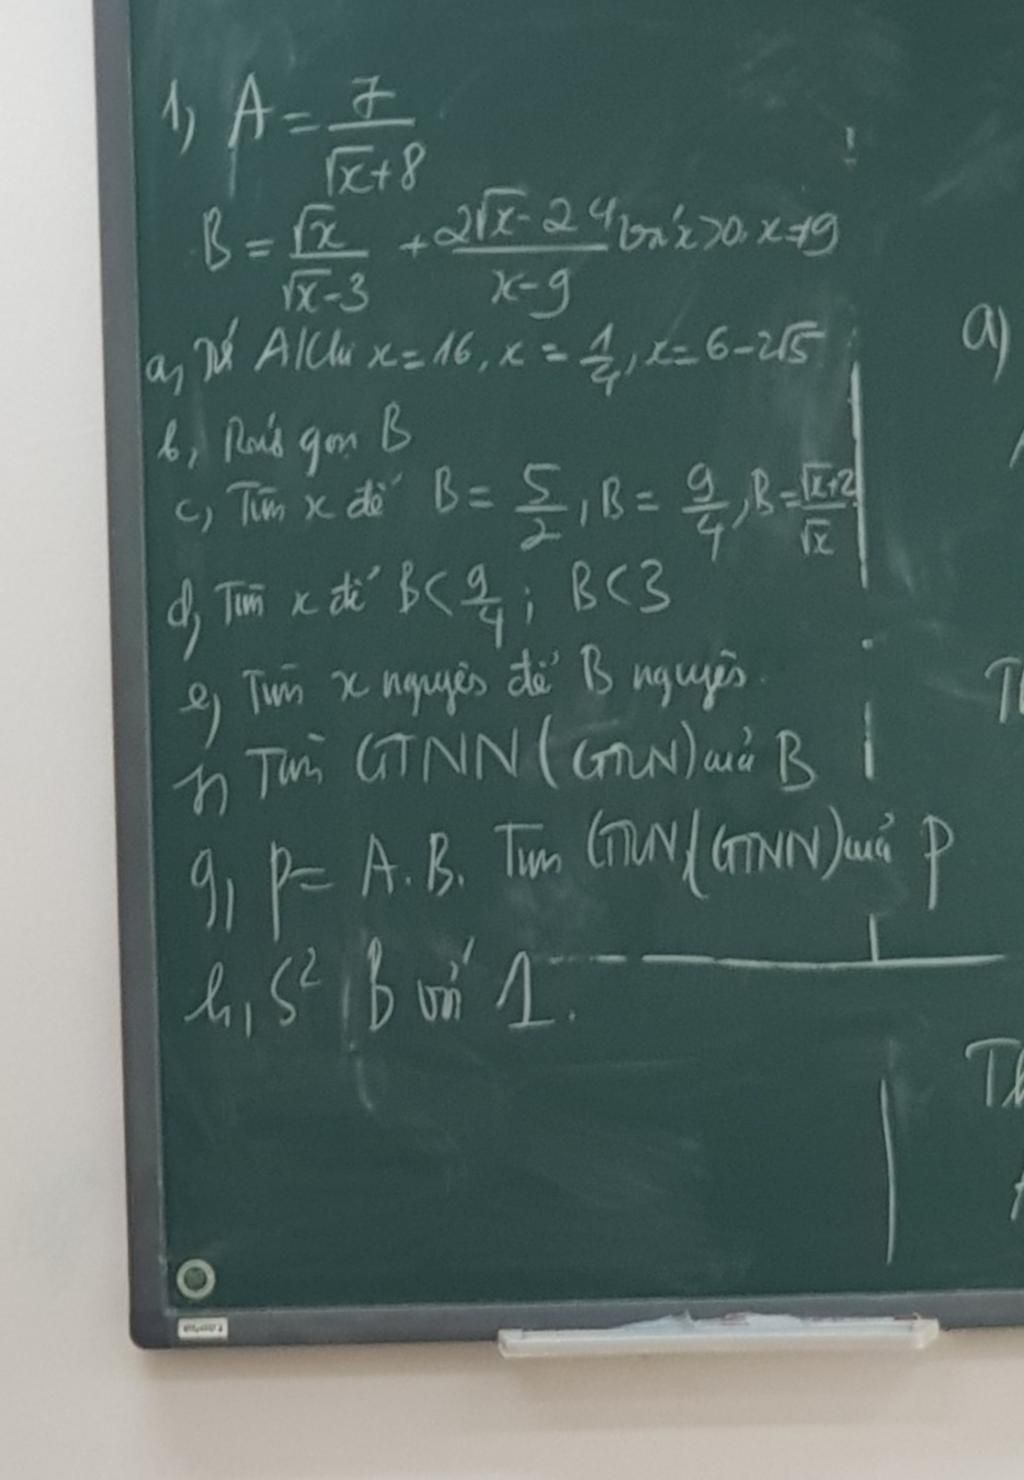 1, A = 7/(√x+8)
B = √x/(√x-3) + (2√x-24)/(x-9) với x>0, x≠9
a, Tính A khi x=16, x=1/4, x=6-2√5
b, Rút gọn B
c, Tìm x để B = 5/2, B = 9/4, B = (√x+2)/√x
d, Tìm x để B < 9/4; B < 3
e, Tìm x nguyên để B nguyên.
f, Tìm GTNN (GTLN) của B
g, P = A.B. Tìm GTLN (GTNN) của P
h, S² B với 1.
a)